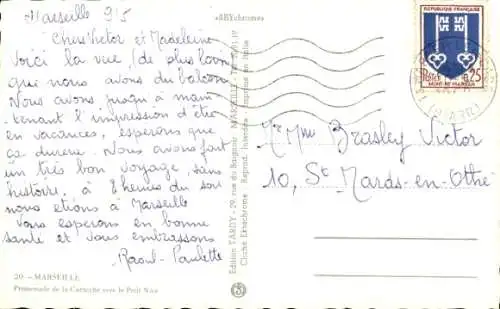 Marseille 9/5
Chers Victor et Madeleine
Voici la vue, de plus loin
que nous avons du balcon
Nous avons jusqu'à main
tenant l'impression d'être
en vacances, esperons que
ça durera. Nous avons fait
un très bon voyage, sans
histoire, à 8 heures du soir
nous etions à Marseille
Vous esperons en bonne
santé et vous embrassons
Raoul - Paulette
20. - MARSEILLE
Promenade de la Corniche vers le Petit Nice
Edition TARDY - 29, rue du Baignoir - MARSEILLE - Tél.
Cliché Ektachrome - Reprod. Interdite - Imprimé en Italie
REPUBLIQUE FRANÇAISE
POSTES
0,25
MONT-DE-MARSAN
Mr Mme Brasley Victor
10, St Mards-en-Othe